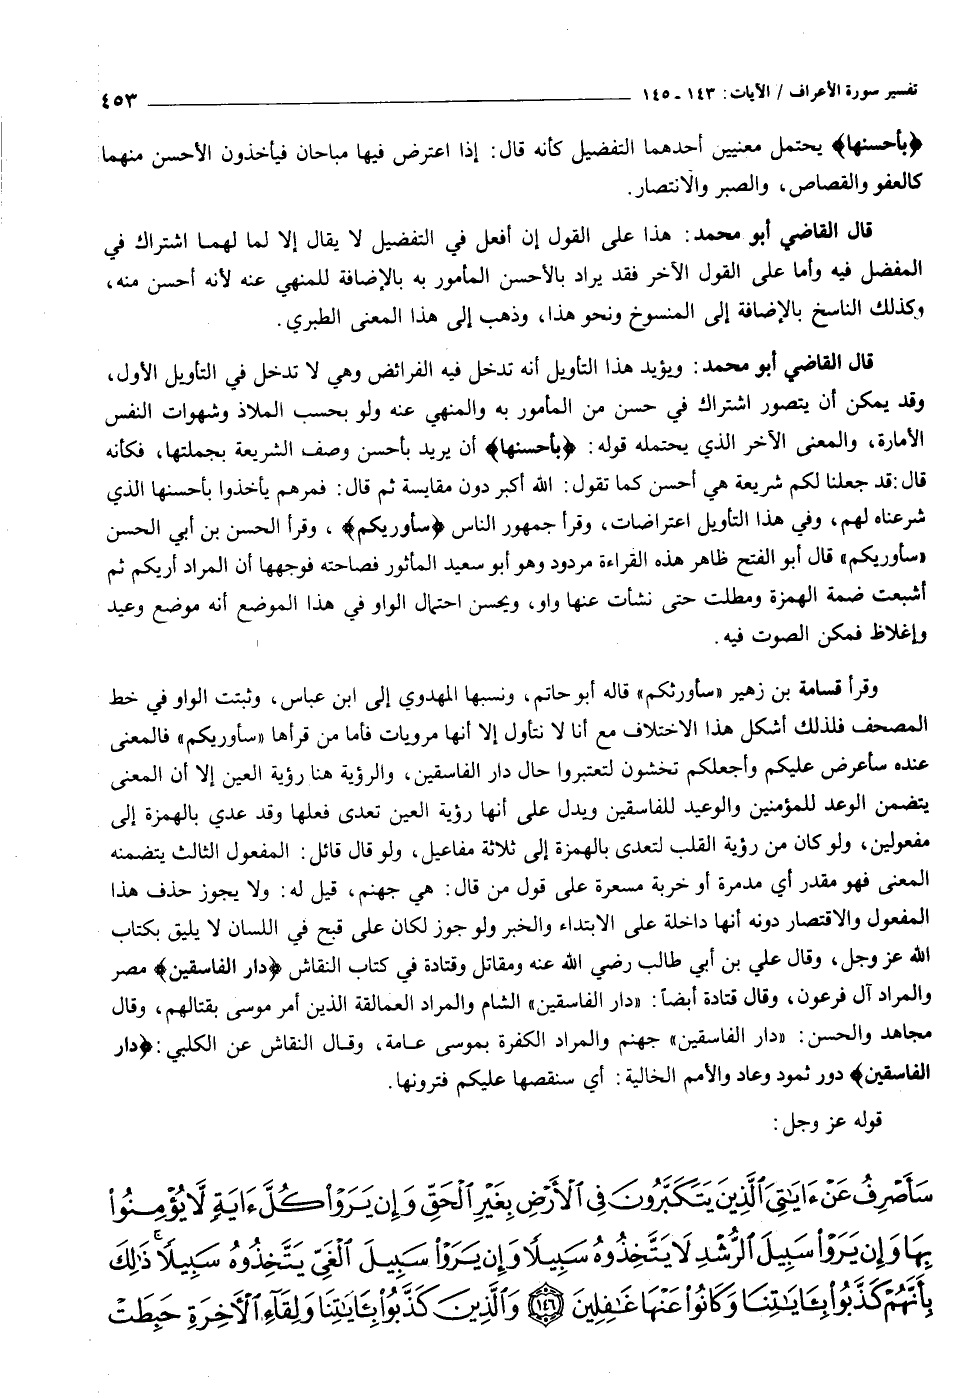 تفسير سورة الأعراف / الآيات: ١٤٣ ـ ١٤٥ ٤٥٣
﴿بأحسنها﴾ يحتمل معنيين أحدهما التفضيل كأنه قال: إذا اعترض فيها مباحان فيأخذون الأحسن منهما
كالعفو والقصاص، والصبر والانتصار.
قال القاضي أبو محمد: هذا على القول إن أفعل في التفضيل لا يقال إلا لما لهما اشتراك في
المفضل فيه وأما على القول الآخر فقد يراد بالأحسن المأمور به بالإضافة للمنهي عنه لأنه أحسن منه،
وكذلك الناسخ بالإضافة إلى المنسوخ ونحو هذا، وذهب إلى هذا المعنى الطبري.
قال القاضي أبو محمد: ويؤيد هذا التأويل أنه تدخل فيه الفرائض وهي لا تدخل في التأويل الأول،
وقد يمكن أن يتصور اشتراك في حسن من المأمور به والمنهي عنه ولو بحسب الملاذ وشهوات النفس
الأمارة، والمعنى الآخر الذي يحتمله قوله: ﴿بأحسنها﴾ أن يريد بأحسن وصف الشريعة بجملتها، فكأنه
قال: قد جعلنا لكم شريعة هي أحسن كما تقول: الله أكبر دون مقايسة ثم قال: فمرهم يأخذوا بأحسنها الذي
شرعناه لهم، وفي هذا التأويل اعتراضات، وقرأ جمهور الناس ﴿سأوريكم﴾ ، وقرأ الحسن بن أبي الحسن
«سأوريكم» قال أبو الفتح ظاهر هذه القراءة مردود وهو أبو سعيد المأثور فصاحته فوجهها أن المراد أريكم ثم
أشبعت ضمة الهمزة ومطلت حتى نشأت عنها واو، ويحسن احتمال الواو في هذا الموضع أنه موضع وعيد
وإغلاظ فمكن الصوت فيه.
وقرأ قسامة بن زهير «سأورثكم» قاله أبو حاتم، ونسبها المهدوي إلى ابن عباس، وثبتت الواو في خط
المصحف فلذلك أشكل هذا الاختلاف مع أنا لا نتأول إلا أنها مرويات فأما من قرأها «سأوريكم» فالمعنى
عنده سأعرض عليكم وأجعلكم تخشون لتعتبروا حال دار الفاسقين، والرؤية هنا رؤية العين إلا أن المعنى
يتضمن الوعد للمؤمنين والوعيد للفاسقين ويدل على أنها رؤية العين تعدى فعلها وقد عدي بالهمزة إلى
مفعولين، ولو كان من رؤية القلب لتعدى بالهمزة إلى ثلاثة مفاعيل، ولو قال قائل: المفعول الثالث يتضمنه
المعنى فهو مقدر أي مدمرة أو خربة مسعرة على قول من قال: هي جهنم، قيل له: ولا يجوز حذف هذا
المفعول والاقتصار دونه أنها داخلة على الابتداء والخبر ولو جوز لكان على قبح في اللسان لا يليق بكتاب
الله عز وجل، وقال علي بن أبي طالب رضي الله عنه ومقاتل وقتادة في كتاب النقاش ﴿دار الفاسقين﴾ مصر
والمراد آل فرعون، وقال قتادة أيضاً: «دار الفاسقين» الشام والمراد العمالقة الذين أمر موسى بقتالهم، وقال
مجاهد والحسن: «دار الفاسقين» جهنم والمراد الكفرة بموسى عامة، وقال النقاش عن الكلبي: ﴿دار
الفاسقين﴾ دور ثمود وعاد والأمم الخالية: أي سنقصها عليكم فترونها.
قوله عز وجل:
سَأَصْرِفُ عَنْ ءَايَٰتِيَ ٱلَّذِينَ يَتَكَبَّرُونَ فِي ٱلْأَرْضِ بِغَيْرِ ٱلْحَقِّ وَإِن يَرَوْا۟ كُلَّ ءَايَةٍ لَّا يُؤْمِنُوا۟
بِهَا وَإِن يَرَوْا۟ سَبِيلَ ٱلرُّشْدِ لَا يَتَّخِذُوهُ سَبِيلًا وَإِن يَرَوْا۟ سَبِيلَ ٱلْغَيِّ يَتَّخِذُوهُ سَبِيلًا ۚ ذَٰلِكَ
بِأَنَّهُمْ كَذَّبُوا۟ بِـَٔايَٰتِنَا وَكَانُوا۟ عَنْهَا غَٰفِلِينَ ﴿١٤٦﴾ وَٱلَّذِينَ كَذَّبُوا۟ بِـَٔايَٰتِنَا وَلِقَآءِ ٱلْأَخِرَةِ حَبِطَتْ